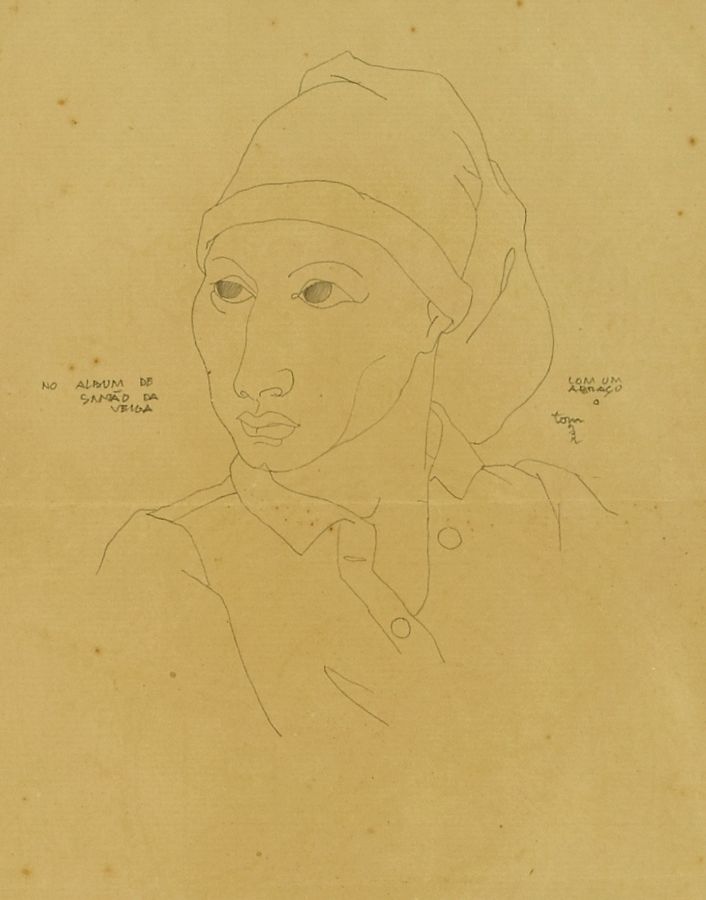 NO ALBUM DE
SIMÃO DA
VEIGA
COM UM
ABRAÇO
o
tom